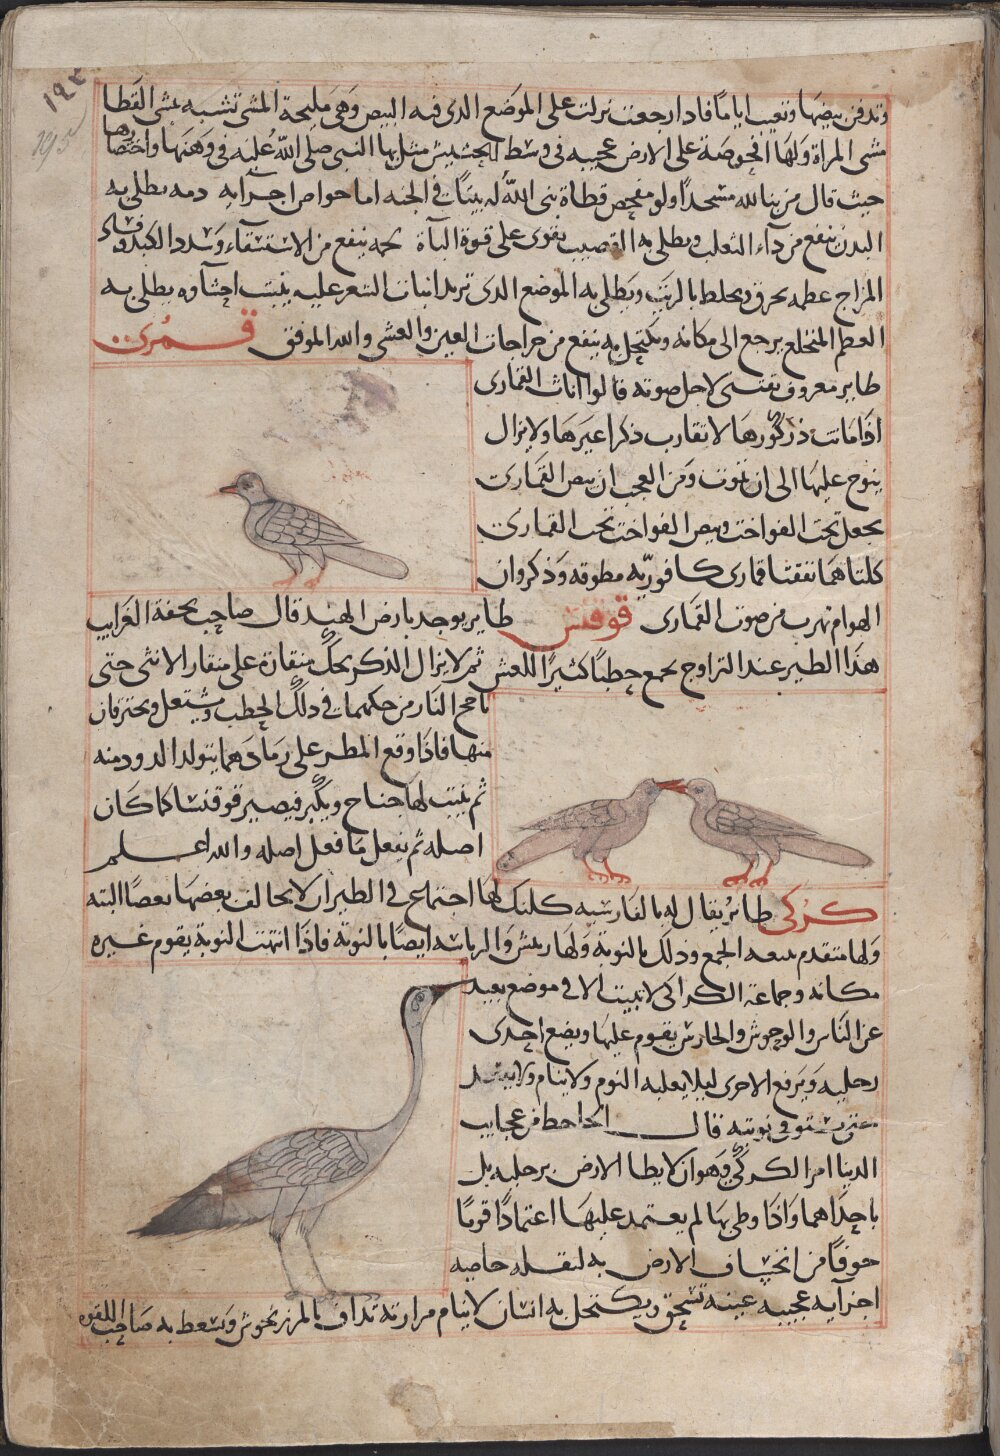 ١٩٣
195
وتدفن بيضها وتغيب اياما فاذا رجعت نزلت على الموضع الذى فيه البيض وهى مليحة المشى تشبه بمشى القطا
مشى المراة ولها افحوصة على الارض عجيبه فى وسط الحشيش مثل بها النبى صلى الله عليه فى وهنها واختصارها
حيث قال من بنا لله مسجدا ولو مفحص قطاة بنى الله له بيتا فى الجنه اما خواص اجزآيه دمه يطلى به
البدن ينفع من دآء الثعلب ويطلى به القضيب يقوى على قوة الباة لحمه ينفع من الاستسقآء وسدد الكبد وفساد
المزاج عظمه يحرق ويخلط بالزيت ويطلى به الموضع الذى تريد انبات الشعر عليه ينبت احشآوه يطلى به
العظم المنخلع يرجع الى مكانه ويكتحل به ينفع من جراحات العين والعشى والله الموفق قمرى
طاير معروف يقتنى لاجل صوته قالوا اناث القمارى
اذا ماتت ذكورها لا تقارب ذكرا غيرها ولا يزال
ينوح عليها الى ان تموت ومن العجب ان بيض القمارى
يجعل تحت الفواخت وبيض الفواخت تحت القمارى
كلتاهما تفقشا قمارى كافوريه مطوقه وذكروا ان
الهوام تهرب من صوت القمارى قوقنس طاير يوجد بارض الهند قال صاحب تحفة الغرايب
هذا الطير عند التزاوج يجمع حطبا كثيرا للعش ثم لا يزال الذكر يحك منقاره على منقار الانثى حتى
تاجج النار من حكهما فى ذلك الحطب ويشتعل ويحترقان
منها فاذا وقع المطر على رمادهما يتولد الدود منه
ثم ينبت لها جناح ويكبر فيصير قوقنسا كما كان
اصله ثم يفعل ما فعل اصله والله اعلم
كركى طاير يقال له بالفارسيه كلنك لها اجتماع فى الطيران لا يخالف بعضها بعضا البته
ولها متقدم يتبعه الجمع وذلك بالنوبة ولها ريش والرياسه ايضا بالنوبة فاذا انتهت النوبة يقوم غيره
مكانه وجماعة الكراكى لا تبيت الا فى موضع بعيد
عن الناس والوحوش والحارس يقوم عليها ويضع احدى
رجليه ويرفع الاخرى ليلا يغلبه النوم ولا ينام ولا
فى نوبته قال الجاحظ من عجايب
الدنيا امر الكركى وهو ان لا يطا الارض برجليه بل
باحداهما واذا وطى بها لم يعتمد عليها اعتمادا قويا
خوفا من انخساف الارض به لثقله خاصيه
اجزآيه عجيبه عينه تسحق ويكتحل به انسان لا ينام مرارته تداف بالمرزنجوش ويسعط به صاحب اللقوه